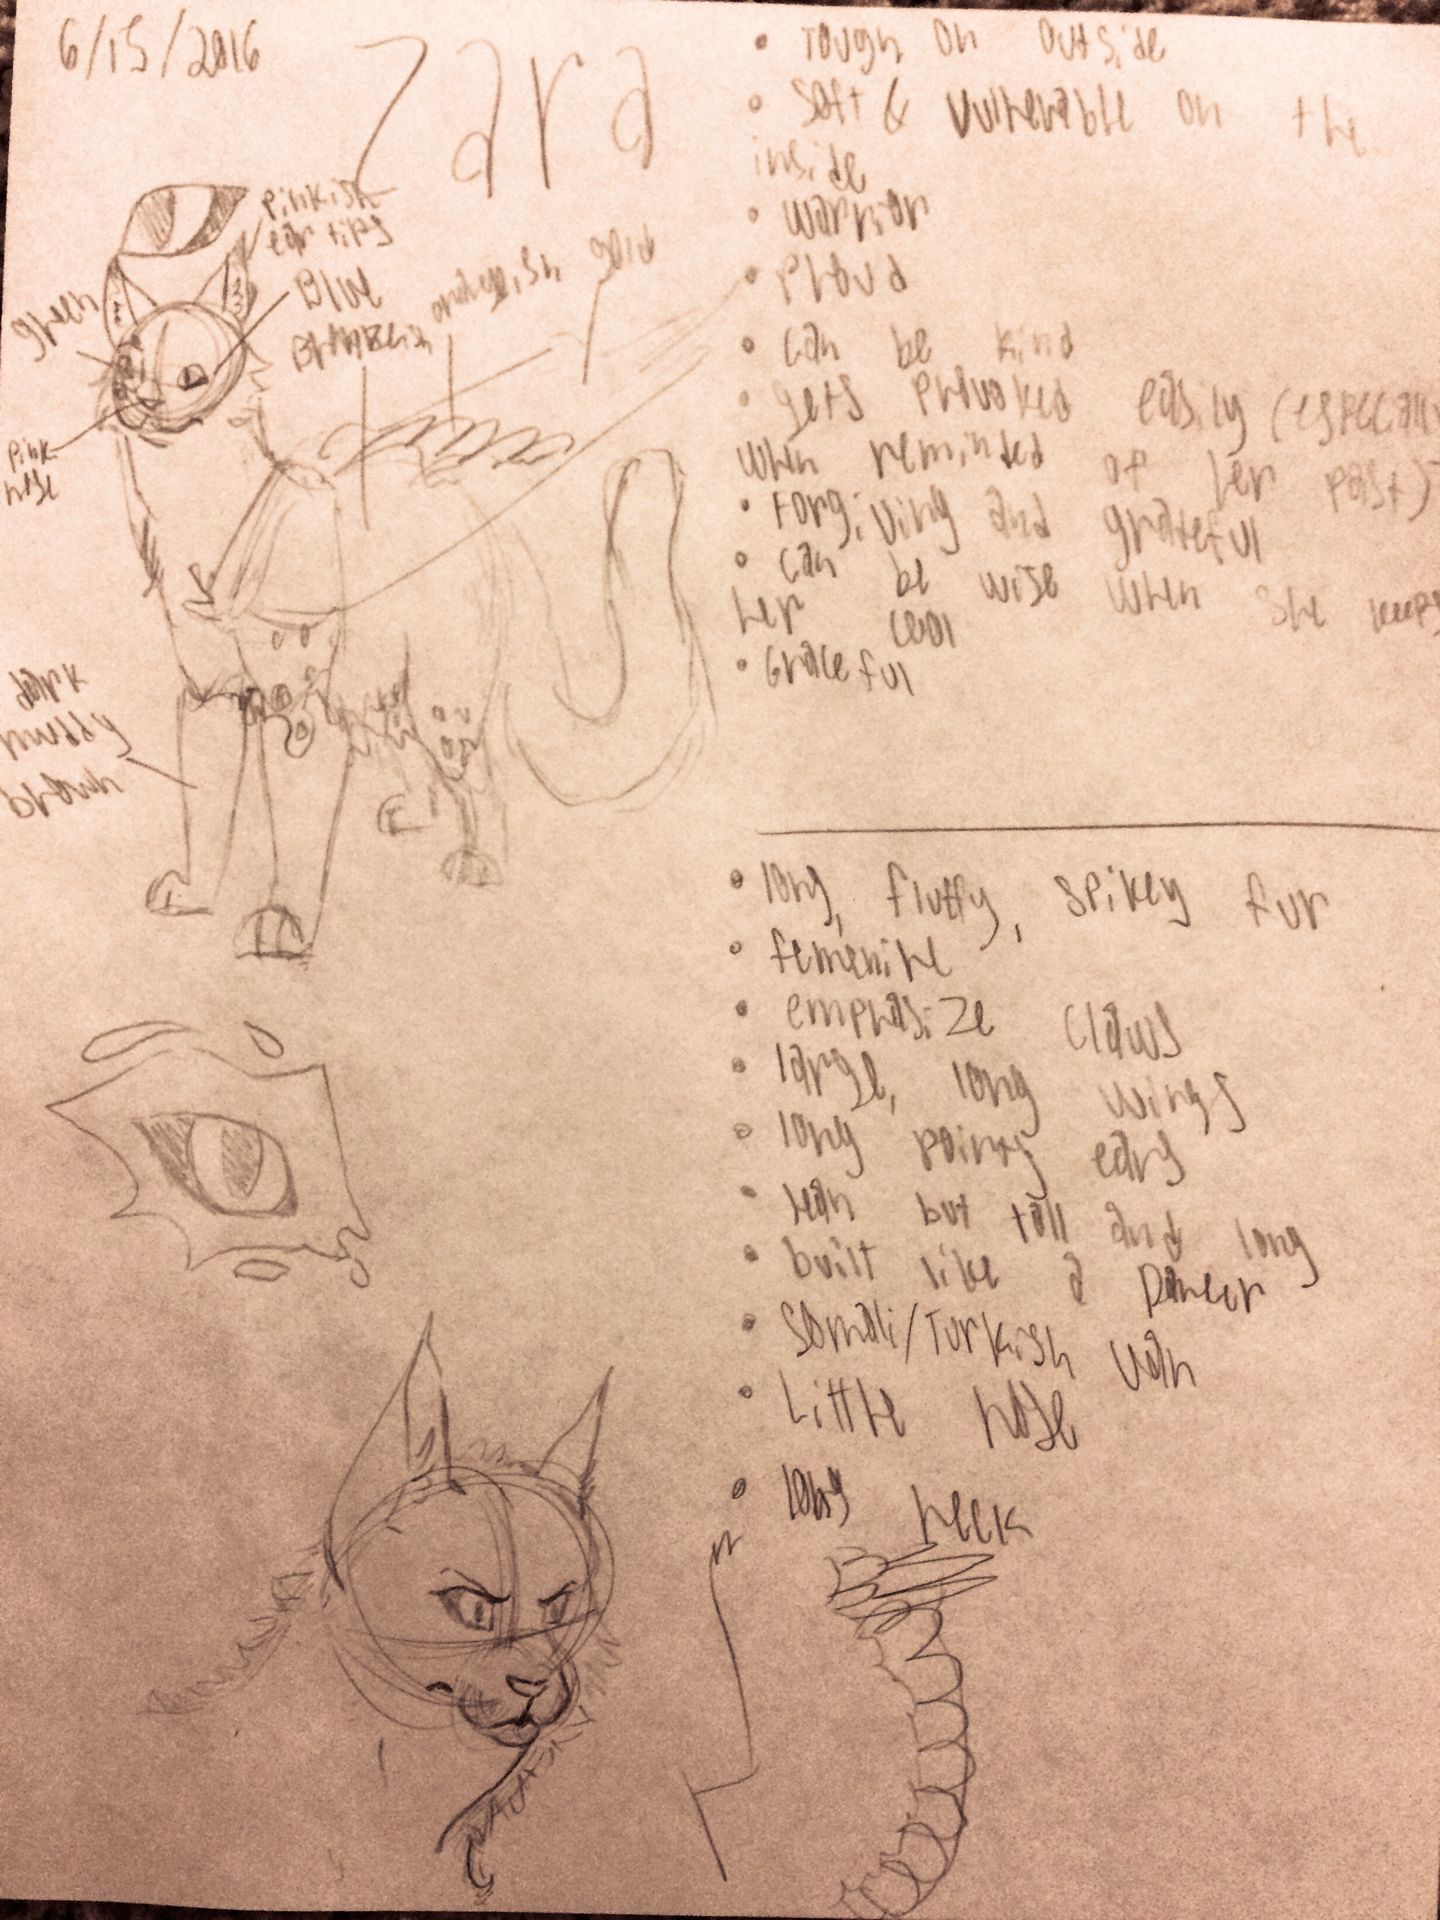 6/15/2016
Zara
pinkish
ear tips
green
Blue
orangish gold
pink
nose
dark
muddy
brown
• Tough on outside
• Soft & vulnerable on the
inside
• warrior
• Proud
• can be kind
• gets provoked easily (especially
when reminded of her past)
• Forgiving and grateful
• can be wise when she keeps
her cool
• Graceful
• long, fluffy, spikey fur
• femenine
• emphasize claws
• large, long wings
• long pointy ears
• lean but tall and long
• built like a Dancer
• Somali/Turkish van
• Little nose
• long neck